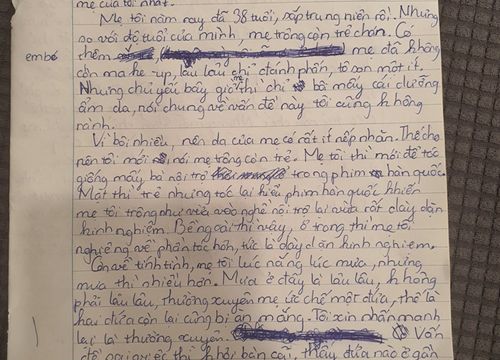 mẹ của tôi nhất.
Mẹ tôi năm nay đã 38 tuổi, sắp trung niên rồi. Nhưng
so với độ tuổi của mình, mẹ trông còn trẻ chán. Có
thêm embé mẹ đã không
còn make-up, lâu lâu chỉ đánh phấn, tô son một ít.
Nhưng chủ yếu bây giờ mẹ thì chỉ bôi mấy cái dưỡng
ẩm da, nói chung về vấn đề này tôi cũng không
rành.
Vì bôi nhiều, nên da của mẹ có rất ít nếp nhăn. Thế cho
nên tôi mới nói mẹ trông còn trẻ. Mẹ tôi thì mới để tóc
giống mấy bà nội trợ trong phim hàn quốc.
Mặt thì trẻ nhưng tóc lại kiểu phim hàn quốc khiến
mẹ tôi trông như vừa vào nghề nội trợ lại vừa rất dày dặn
kinh nghiệm. Bề ngoài thì vậy, ở trong thì mẹ tôi
nghiêng về phần tóc hơn, tức là dày dặn kinh nghiệm.
Còn về tính tình, mẹ tôi lúc nắng lúc mưa, nhưng
mưa thì nhiều hơn. Mưa ở đây là lâu lâu, không
phải lâu lâu, thường xuyên mẹ ức chế một đứa, thế là
hai đứa còn lại cũng bị ăn mắng. Tôi xin nhấn mạnh
lại là thường xuyên. Vấn